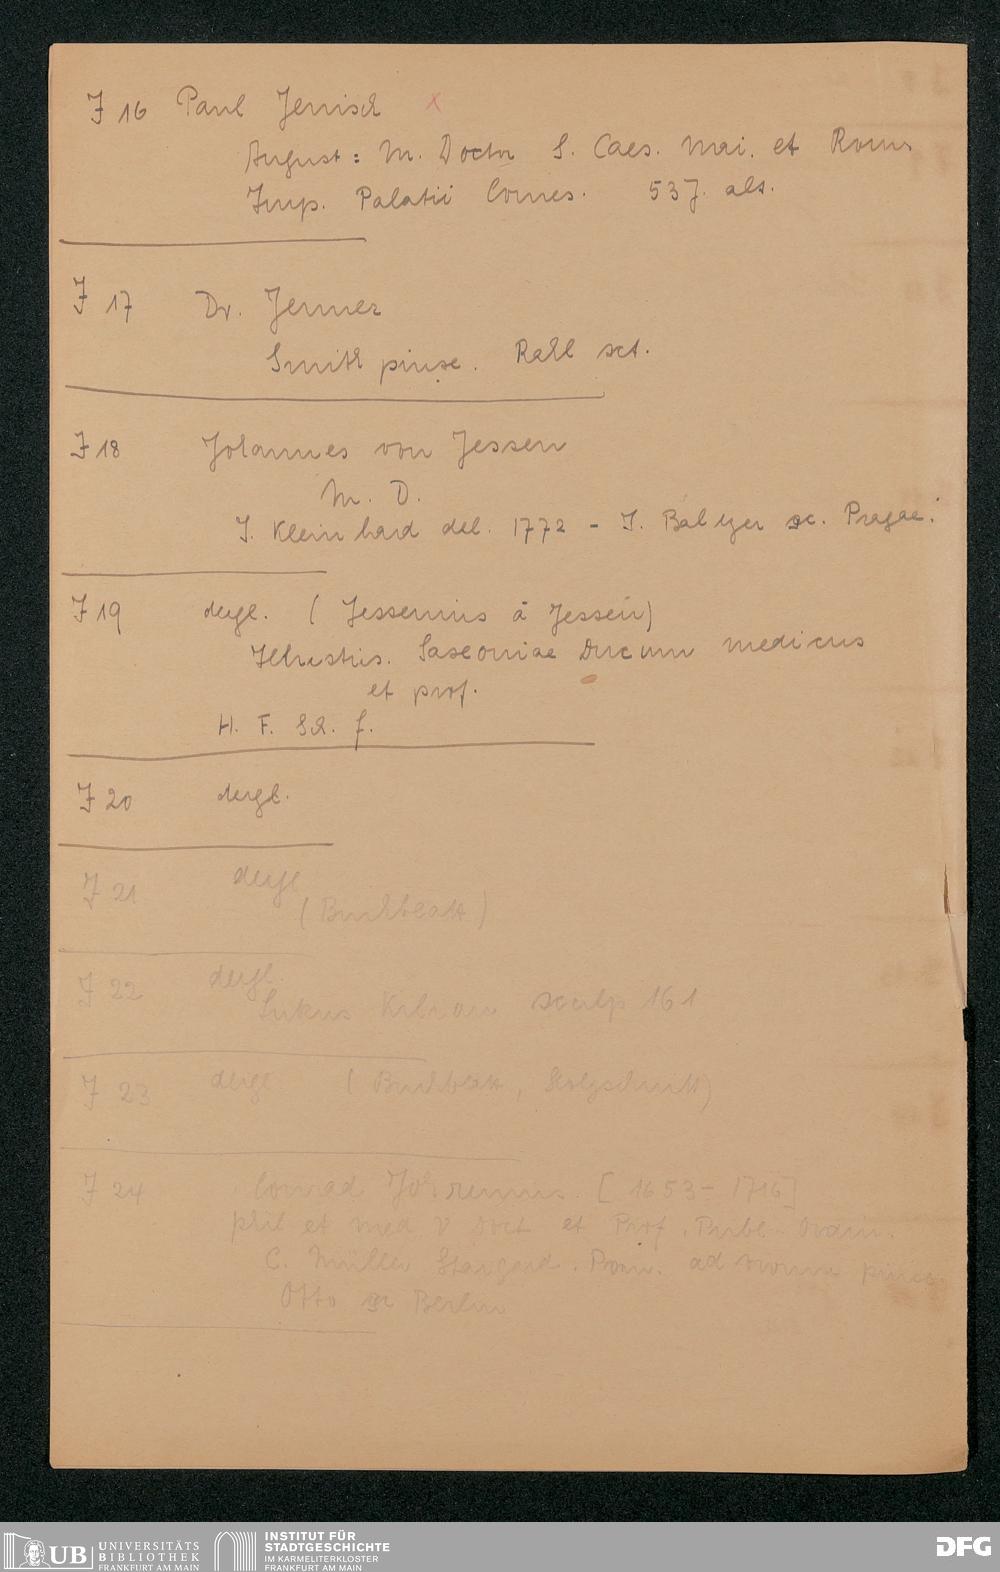 J 16 Paul Jenisch x
August: M. Doctor S. Caes. Mai. et Roms
Imp. Palatii Comes. 53 J. alt.
J 17 Dr. Jenner
Smith pinx. Rahl sct.
J 18 Johannes von Jessen
M. D.
J. Kleinhard del. 1772 - J. Balzer sc. Pragae.
J 19 dergl. (Jessenius à Jessen)
Illustris. Saxoniae Ducum medicus
et prof.
H. F. Sch. f.
J 20 dergl.
J 21 dergl
(Buchblatt)
J 22 dergl.
Lukas Kilian sculp 161
J 23 dergl (Buchblatt, Holzschnitt)
J 24 Conrad Johrenius. [1653-1716]
phil et med Doct et Prof. Publ. Ordin.
C. Müller Stargard. Pom. ad vivum pinx
Otto sc Berlin
UB UNIVERSITÄTS
BIBLIOTHEK
FRANKFURT AM MAIN
INSTITUT FÜR
STADTGESCHICHTE
IM KARMELITERKLOSTER
FRANKFURT AM MAIN
DFG